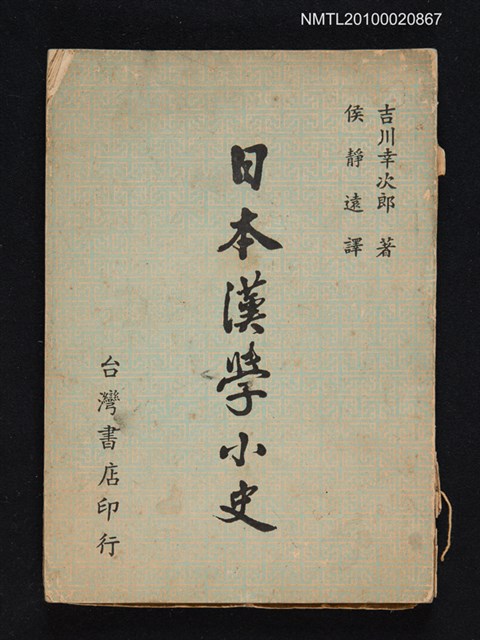 NMTL20100020867
吉川幸次郎 著
侯靜遠 譯
日本漢學小史
台灣書店印行